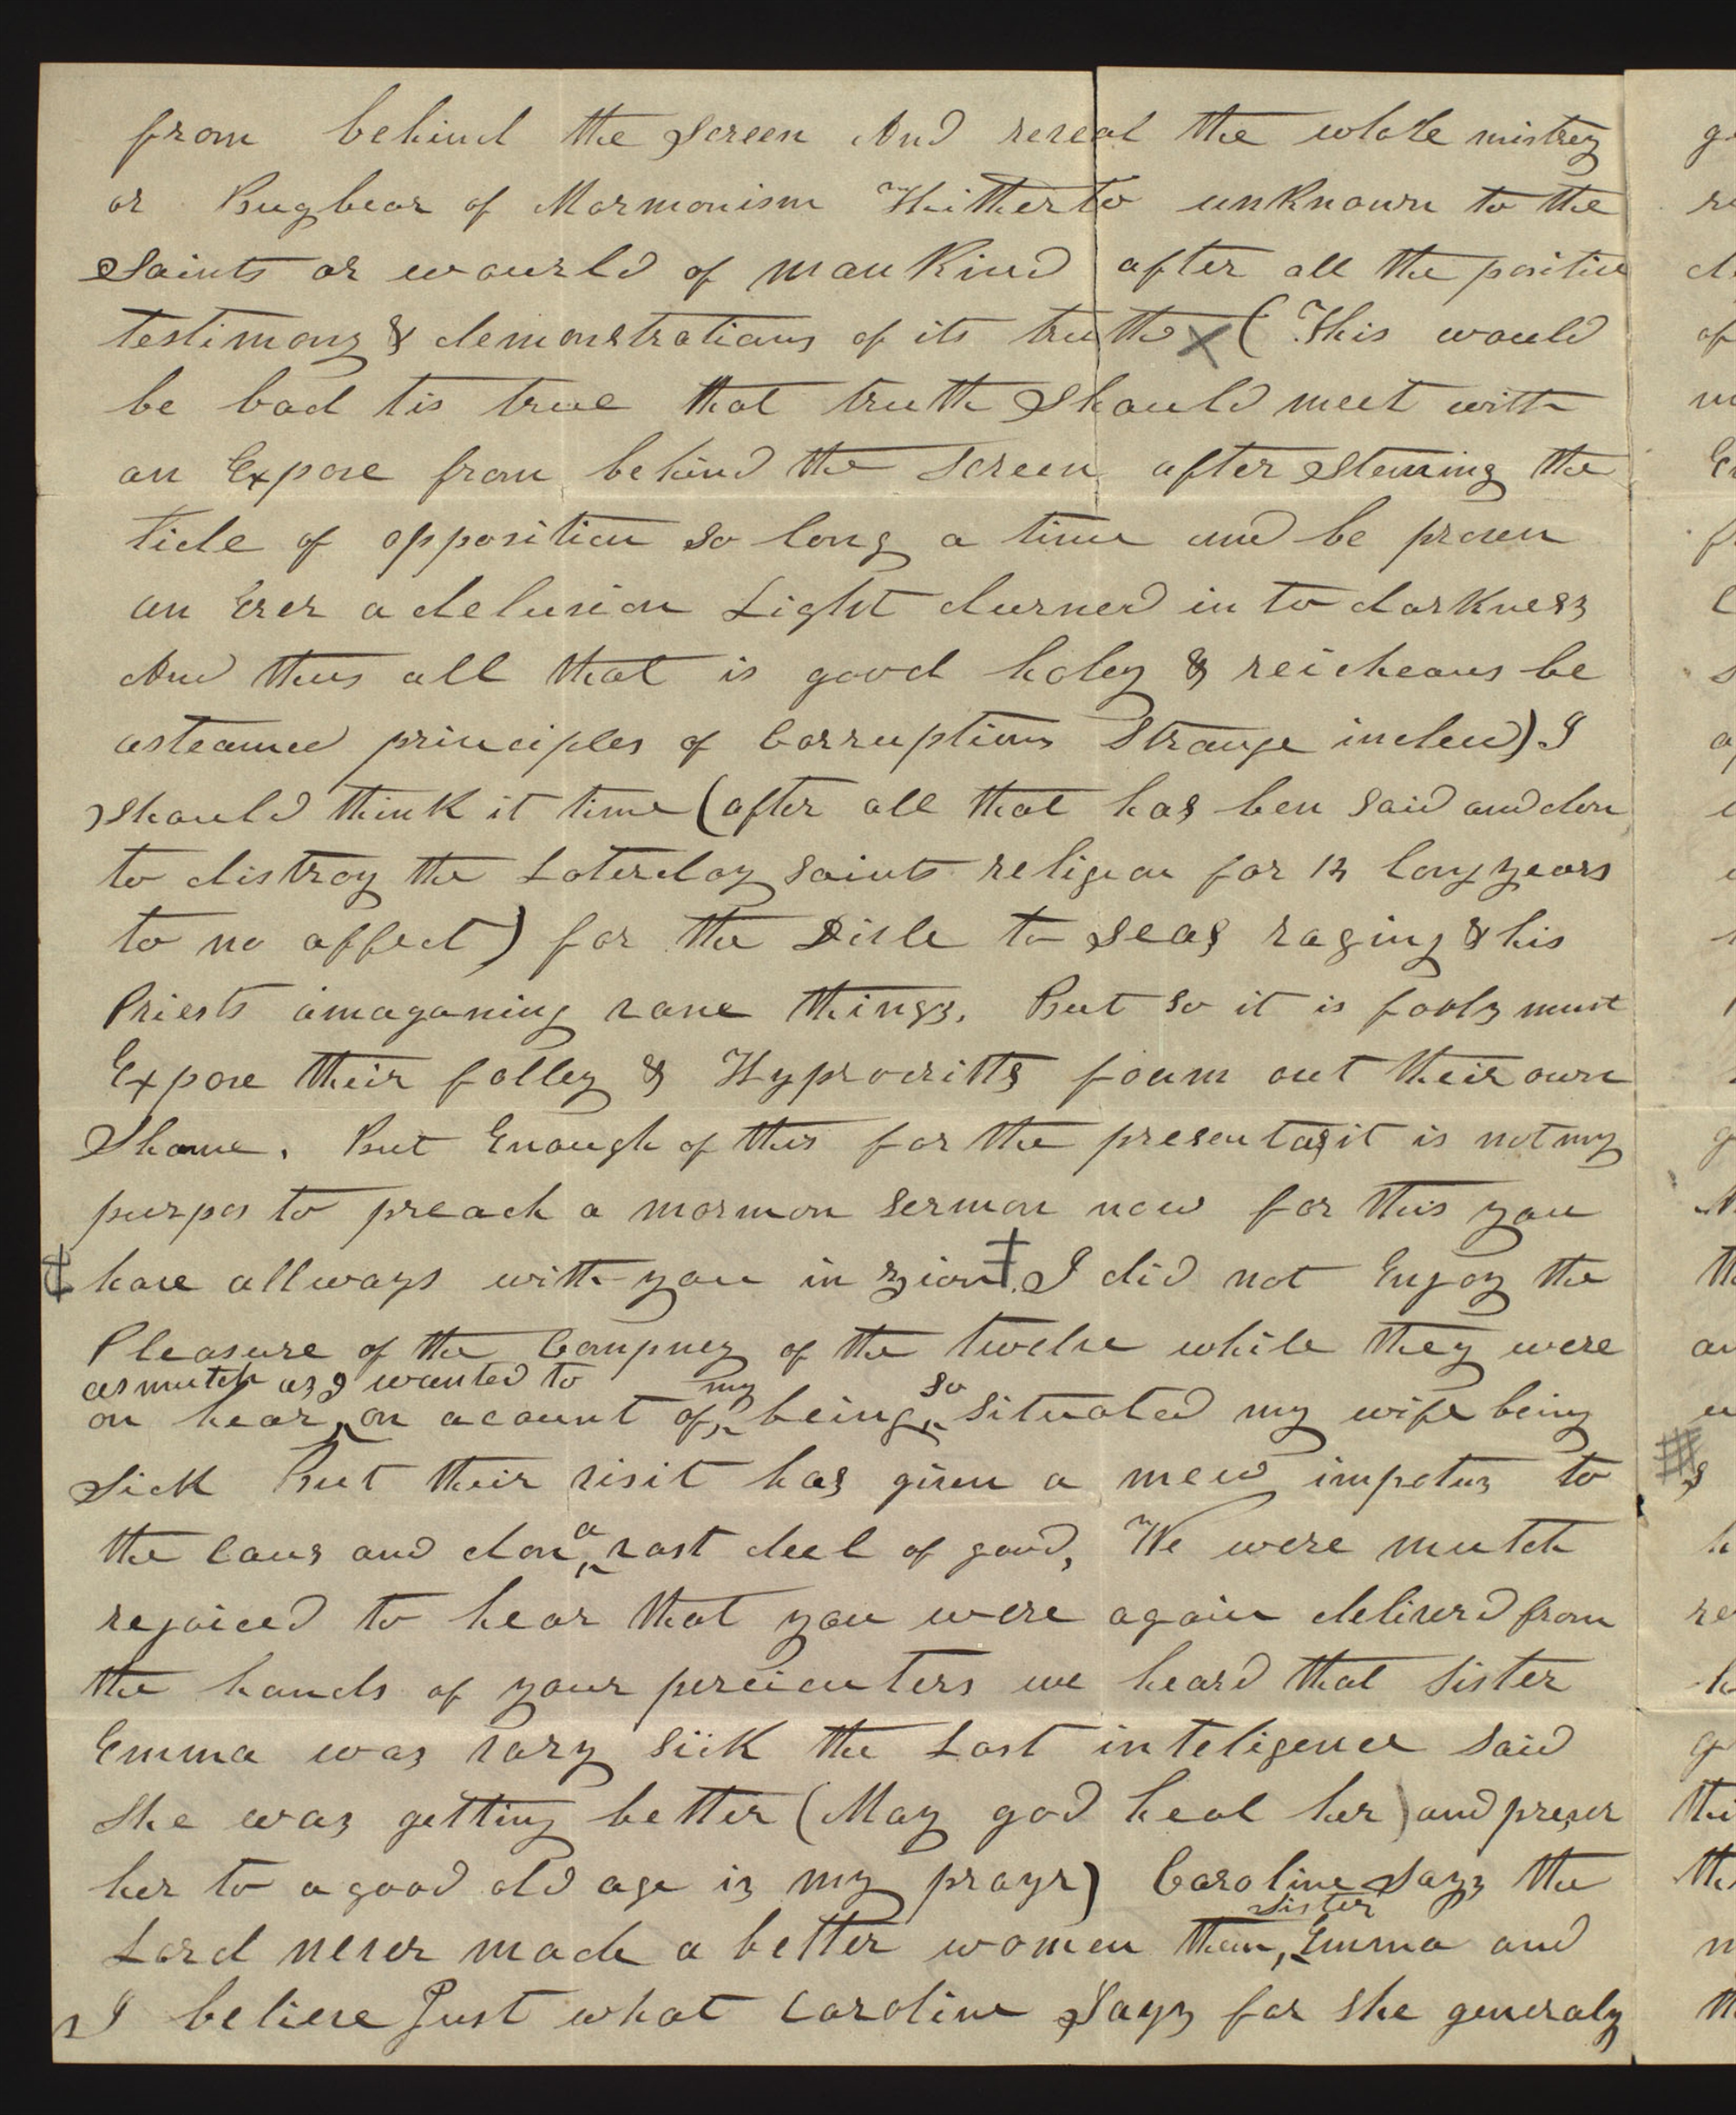 from behind the Screen And reveal the whole mistrey
or Bugbear of Mormonism Hitherto unKnown to the
Saints or wourld of man Kind after all the positive
testimony & demonstrations of its truth X ( This would
be bad tis true that truth Should meet with
an Expose from behind the Screen after Steming the
tide of opposition So long a time and be proven
an Erer a delusion Light durned in to darKness
And thus all that is good holey & reicheous be
asteamed principles of Corruptions Strange indeed) I
Should thinK it time (after all that has ben Said and don
to distroy the Laterday Saints religion for 13 long years
to no affect) for the Divle to Seas raging & his
Priests amaganing vane things. But So it is fools must
Expose their folley & Hyprocritts foam out their own
Shame. But Enough of this for the present as it is not my
purpos to preach a mormon Sermon now for this you
have allways with you in zion ‡. I did not Enjoy the
Pleasure of the Compney of the twelve while they were
as mutch as I wanted to my so
on hear ^ on acount of ^ being ^ Situated my wife being
SicK But their visit has given a new impetus to
a
the Caus and don ^ vast deel of good, We were mutch
rejoiced to hear that you were again deliverd from
the hands of your percicuters we heard that Sister
Emma was vary SicK the Last inteligence Said
She was getting better (May god heal her) and preser
her to a good old age is my prayr) Caroline Says the
Sister
Lord never made a better women than ^ Emma and
I believe Just what Caroline Says for She generaly